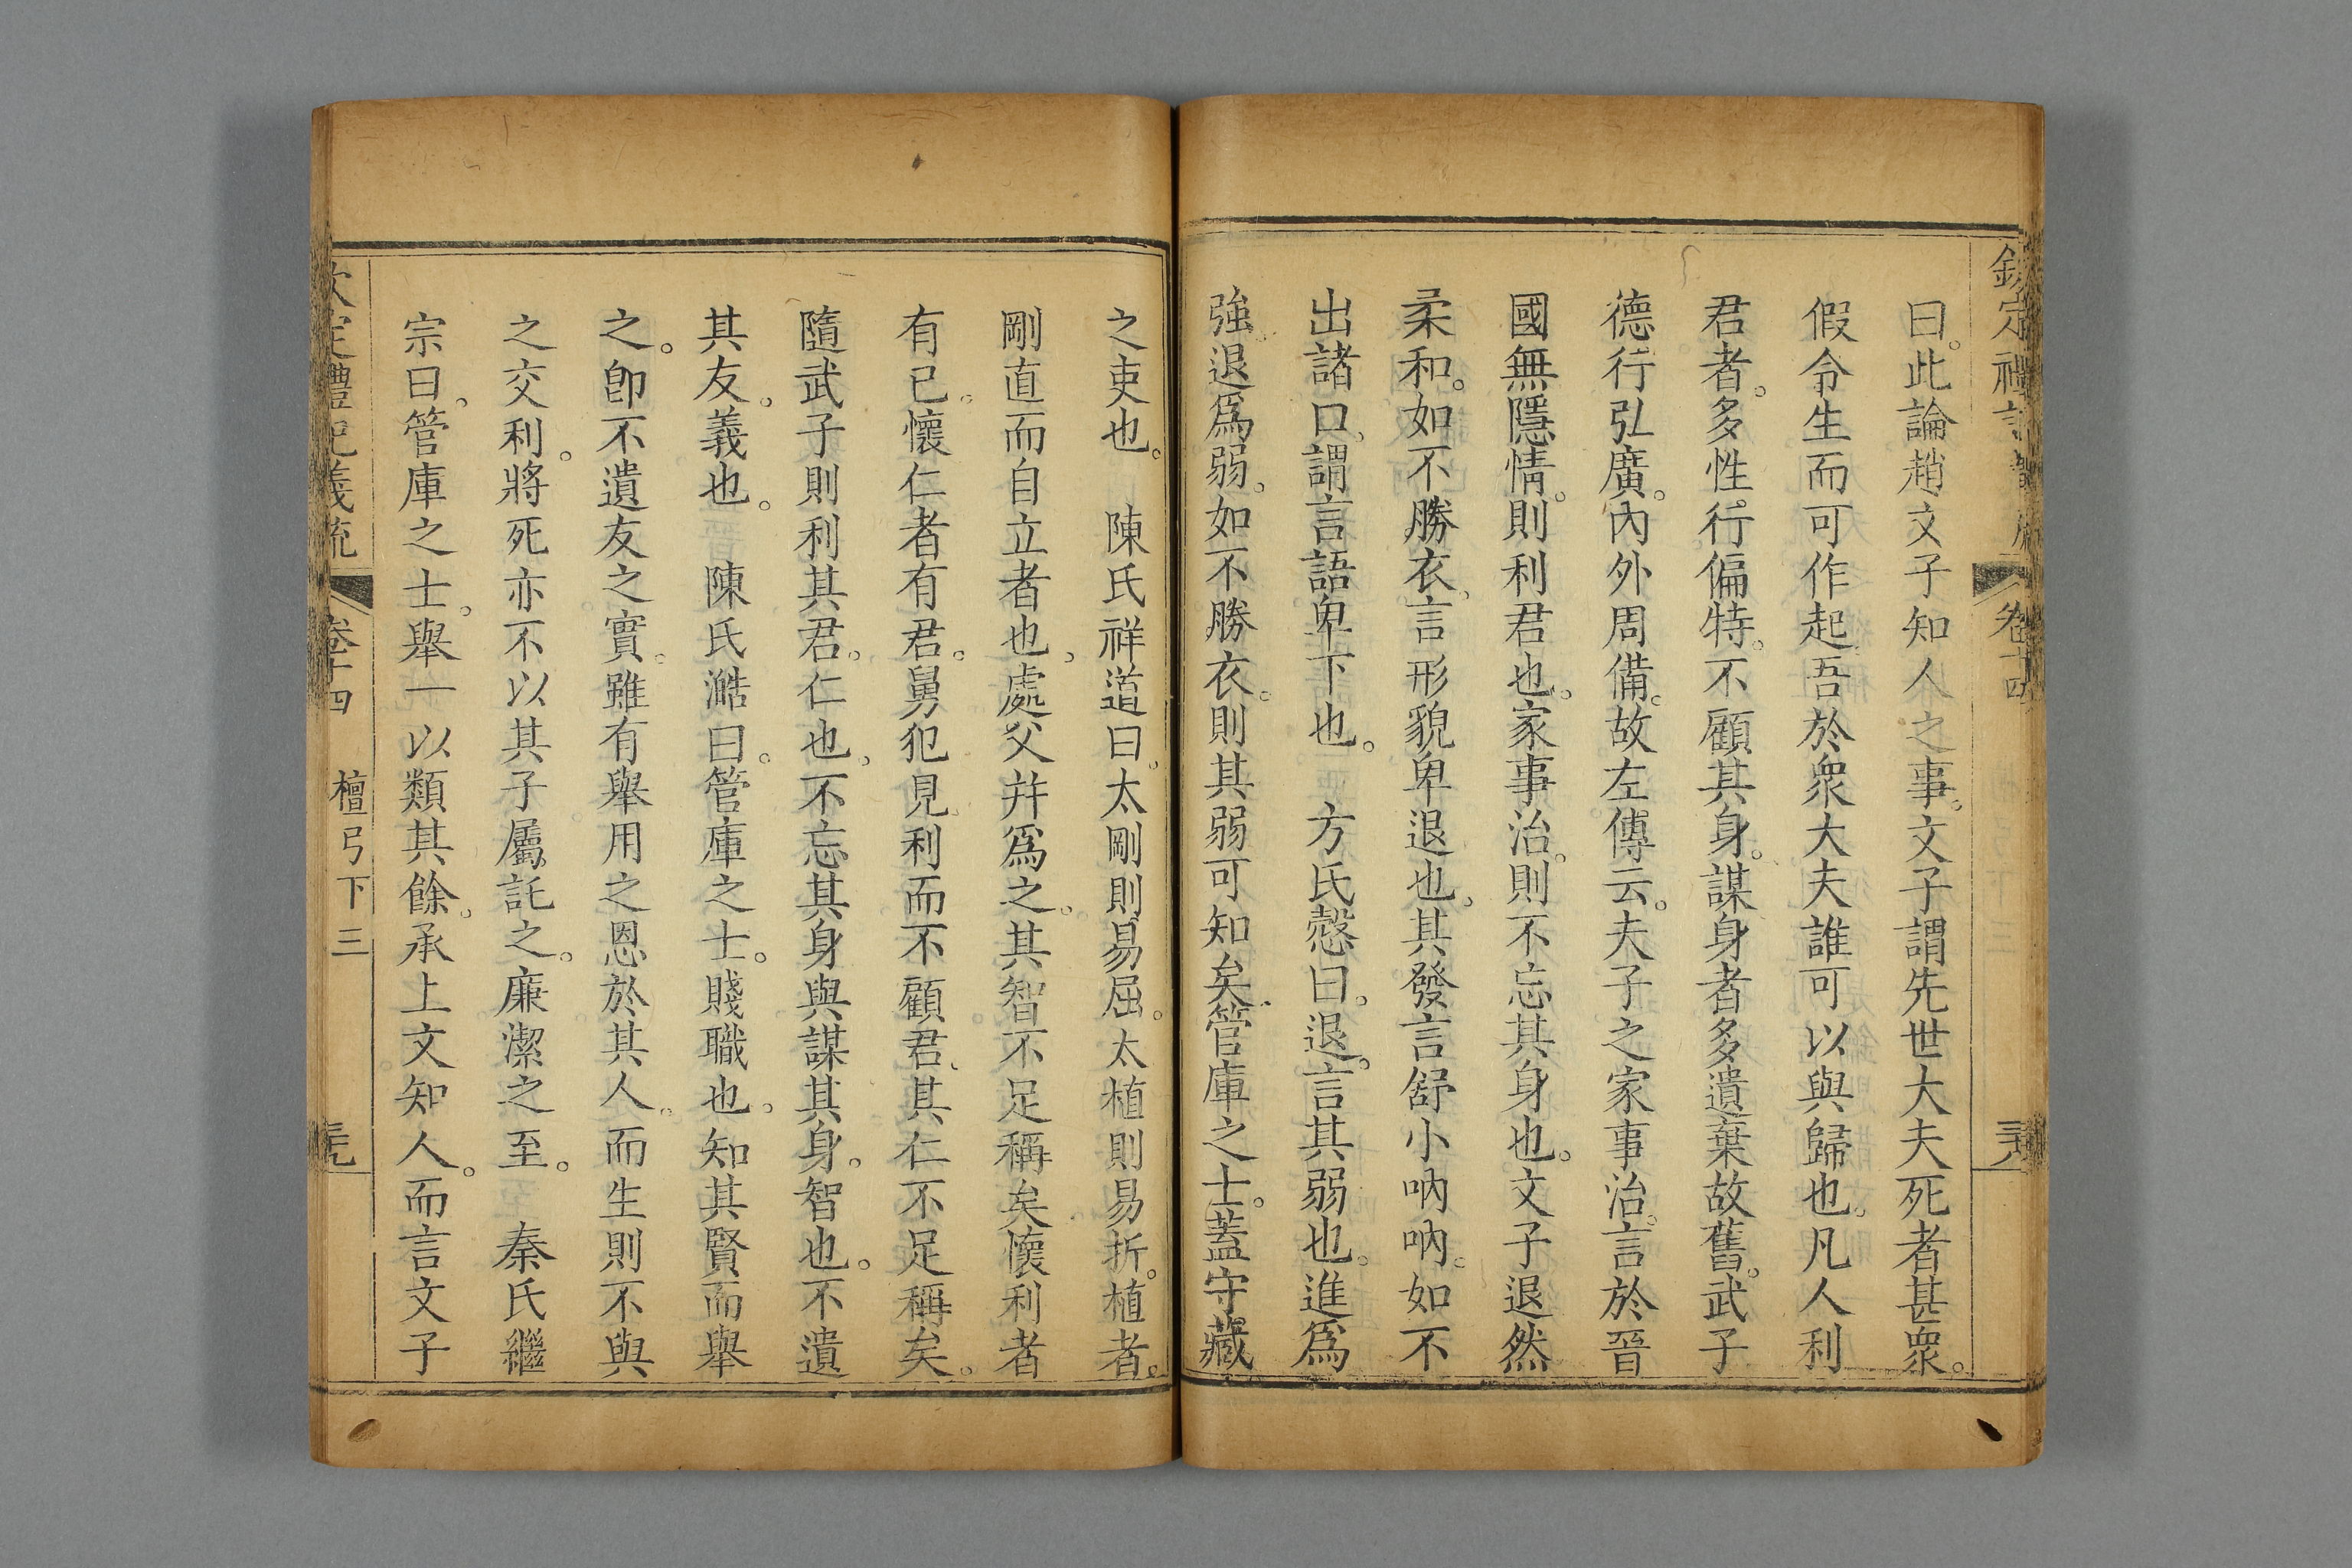 曰。此論趙文子知人之事。文子謂先世大夫死者甚衆。
假令生而可作起吾於衆大夫誰可以與歸也。凡人利
君者。多性。行偏特。不顧其身。謀身者多遺棄故舊。武子
德行弘廣。內外周備。故左傳云。夫子之家事治。言於晉
國無隱情。則利君也。家事治。則不忘其身也。文子退然
柔和。如不勝衣。言形貌卑退也。其發言舒小吶吶。如不
出諸口。謂言語卑下也。 方氏慤曰。退。言其弱也。進爲
強。退爲弱。如不勝衣。則其弱可知矣。管庫之士。蓋守藏
之吏也。 陳氏祥道曰。太剛則易屈。太植則易折。植者。
剛直而自立者也。處父幷爲之。其智不足稱矣。懷利者
有己。懷仁者有君。舅犯見利而不顧君。其仁不足稱矣。
隨武子則利其君。仁也。不忘其身與謀其身。智也。不遺
其友。義也。 陳氏澔曰。管庫之士。賤職也。知其賢而舉
之。卽不遺友之實。雖有舉用之恩於其人。而生則不與
之交利。將死亦不以其子屬託之。廉潔之至。 秦氏繼
宗曰。管庫之士。舉一以類其餘。承上文知人。而言文子
欽定禮記義疏 卷十四 檀弓下三